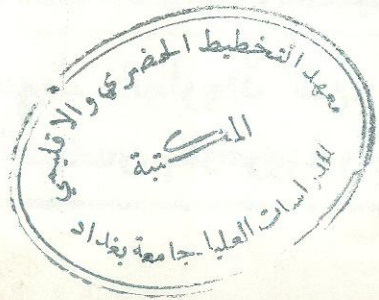 معهد التخطيط الحضري والاقليمي
المكتبة
للدراسات العليا - جامعة بغداد